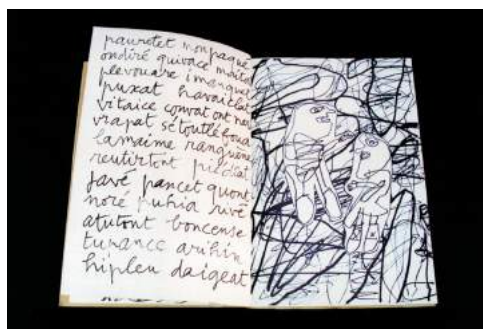 pauretet monpaqué
ondiré quivace maita
plevouare imanqué
puxat havaiclat
vitaice convat ont ner
vrapat sétoutlé boua
lamaime ranguène
reutirtont
javé pancet quont
noré puhia rivé
atutont boncense
turance arihin
hipleu daigeat